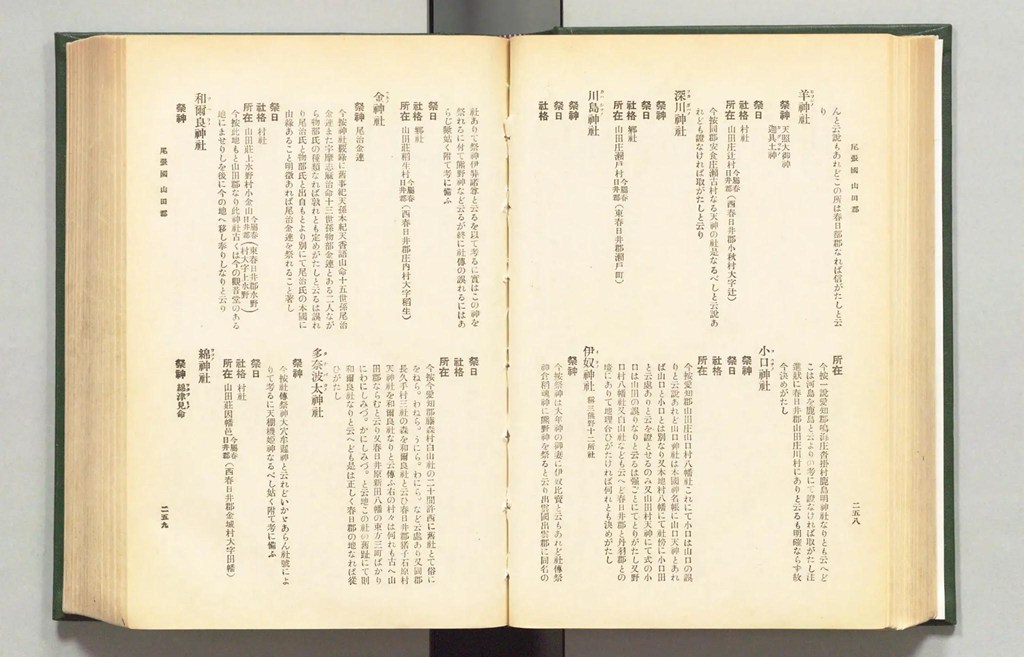 尾張國 山田郡
んと云說もあれどこの所は春日部郡なれば信がたしと云
り
羊神社
祭神 天照大御神
迦具土神
祭日
社格 村社
所在 山田庄辻村 今屬春日井郡 (西春日井郡小秋村大字辻)
今按同郡安食庄瀨古村なる天神の社是なるべしと云說あ
れども證なければ取がたしと云り
深川神社
祭神
祭日
社格 鄕社
所在 山田庄瀨戶村 今屬春日井郡 (東春日井郡瀨戶町)
川島神社
祭神
祭日
社格
所在
今按一說愛知郡鳴海庄沓掛村鹿島明神社なりとも云へど
こは河島を鹿島と云よりの考にて證なければ取がたし注
進狀に春日井郡山田庄川村にありと云るも明確ならず故
今決めがたし
小口神社
祭神
祭日
社格
所在
今按愛知郡山田庄山口村八幡社これにて小口は山口の誤
りと云說あれど山口神社は本國神名帳に山口天神とあれ
ば山口と小口とは別なり又本地村八幡にて社傍に小口田
と云處ありと云を證とせるのみ又山田村天神にて式の小
口は山田の誤りなりと云るは强ごとにてとりがたし又野
口村八幡社又白山社なども云へど春日井郡と丹羽郡との
境にありて地理合ひがたければ何れとも決めがたし
伊奴神社 稱三熊野十二所社
祭神
今按祭神は大年神の御妻に伊奴比賣と云もあれど社傳祭
神倉稻魂神に熊野神を祭ると云り出雲國出雲郡に同名の
二五八
尾張國 山田郡
社ありて祭神伊弉諾尊と云るを以て考るに實はこの神を
祭れるに付て熊野神など云るが終に社傳の誤れるにはあ
らじ歟姑く附て考に備ふ
祭日
社格 鄕社
所在 山田莊稻生村 今屬春日井郡 (西春日井郡庄內村大字稻生)
金神社
祭神 尾治金連
今按神社覈錄に舊事紀天孫本紀天香語山命十五世孫尾治
金連また宇摩志麻治命十三世孫物部金連とある二人なが
ら物部氏の種類なれば孰れとも定めがたしと云るは誤れ
り尾治氏と物部氏と出自もとより別にて尾治氏の本國に
由緣あること明徵あれば尾治金連を祭れること著し
祭日
社格 村社
所在 山田莊上水野村小金山 今屬春日井郡 (東春日井郡水野村大字上水野)
今按此地もと山田郡なり此神社古くは今の觀音堂のある
地にませりしを後に今の地へ移し奉りしなりと云り
和爾良神社
祭神
祭日
社格
所在
今按今愛知郡藤森村白山社の二十間許西に舊社とて俗に
をねら。わねら。うにら。わにら。など云處あり又同郡
長久手村三社の森を和爾良社と云ひ春日井郡猪子石原村
天神社を和爾良社なりと云傳ふ右の村々は何れも古へ山
田郡ならむと云り又春日井原新田八幡の東方三町ばかり
にわにしみづ。かにしみづ。と云地この社の舊趾にて則
和爾良社なりと云へども是は正しく春日郡の地なれば從
ひがたし
多奈波太神社
祭神
今按社傳祭神大穴牟遲神と云れどいかゞあらん社號によ
りて考るに天棚機姬神なるべし姑く附て考に備ふ
祭日
社格 村社
所在 山田莊因幡邑 今屬春日井郡 (西春日井郡金城村大字田幡)
綿神社
祭神 綿津見命
二五九